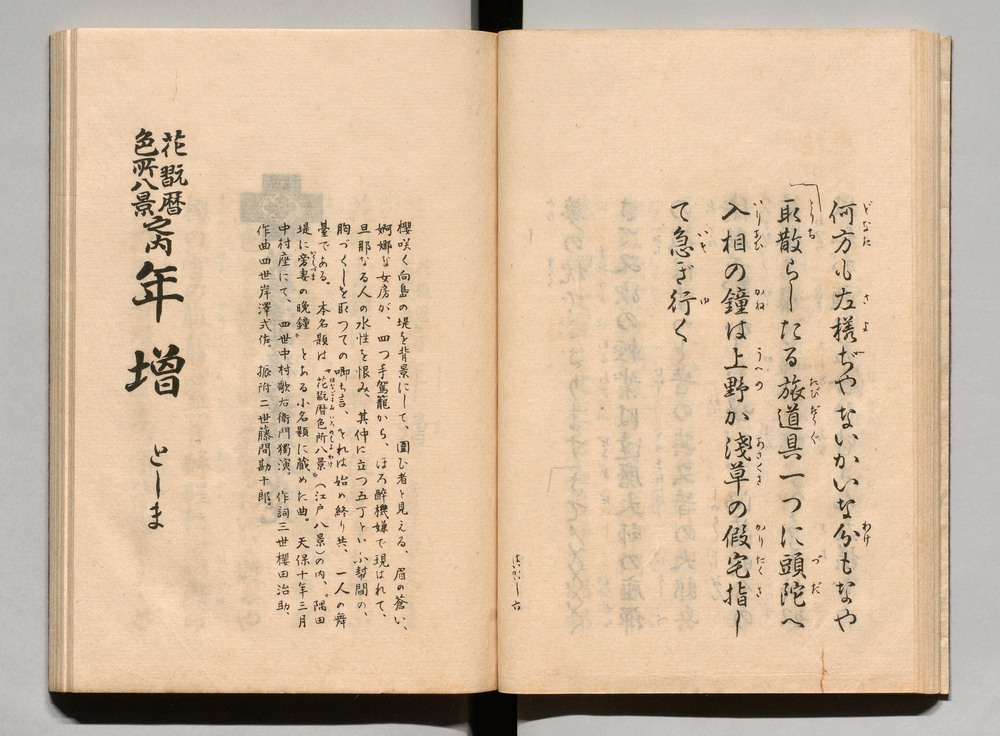 何方も左様ぢやないかいな分もなや
取散らしたる旅道具一つに頭陀へ
入相の鐘は上野か淺草の假宅指し
て急ぎ行く
花翫暦
色所八景
之内
年増
としま
櫻咲く向島の堤を背景にして、圍ひ者と見える、眉の蒼い、
婀娜な女房が、四つ手駕籠から、ほろ醉機嫌で現はれて、
旦那なる人の水性を恨み、其仲に立つ五丁といふ幇間の、
胸づくしを取つての嘲ち言、それは始め終り共、一人の舞
臺である。本名題は「花翫暦色所八景」(江戸八景)の内、「隅田
堤に旁妻の晩鐘」とある小名題に蔵めた曲。天保十年三月
中村座にて、四世中村歌右衛門獨演。作詞三世櫻田治助、
作曲四世岸澤式佐。振附二世藤間勘十郎。